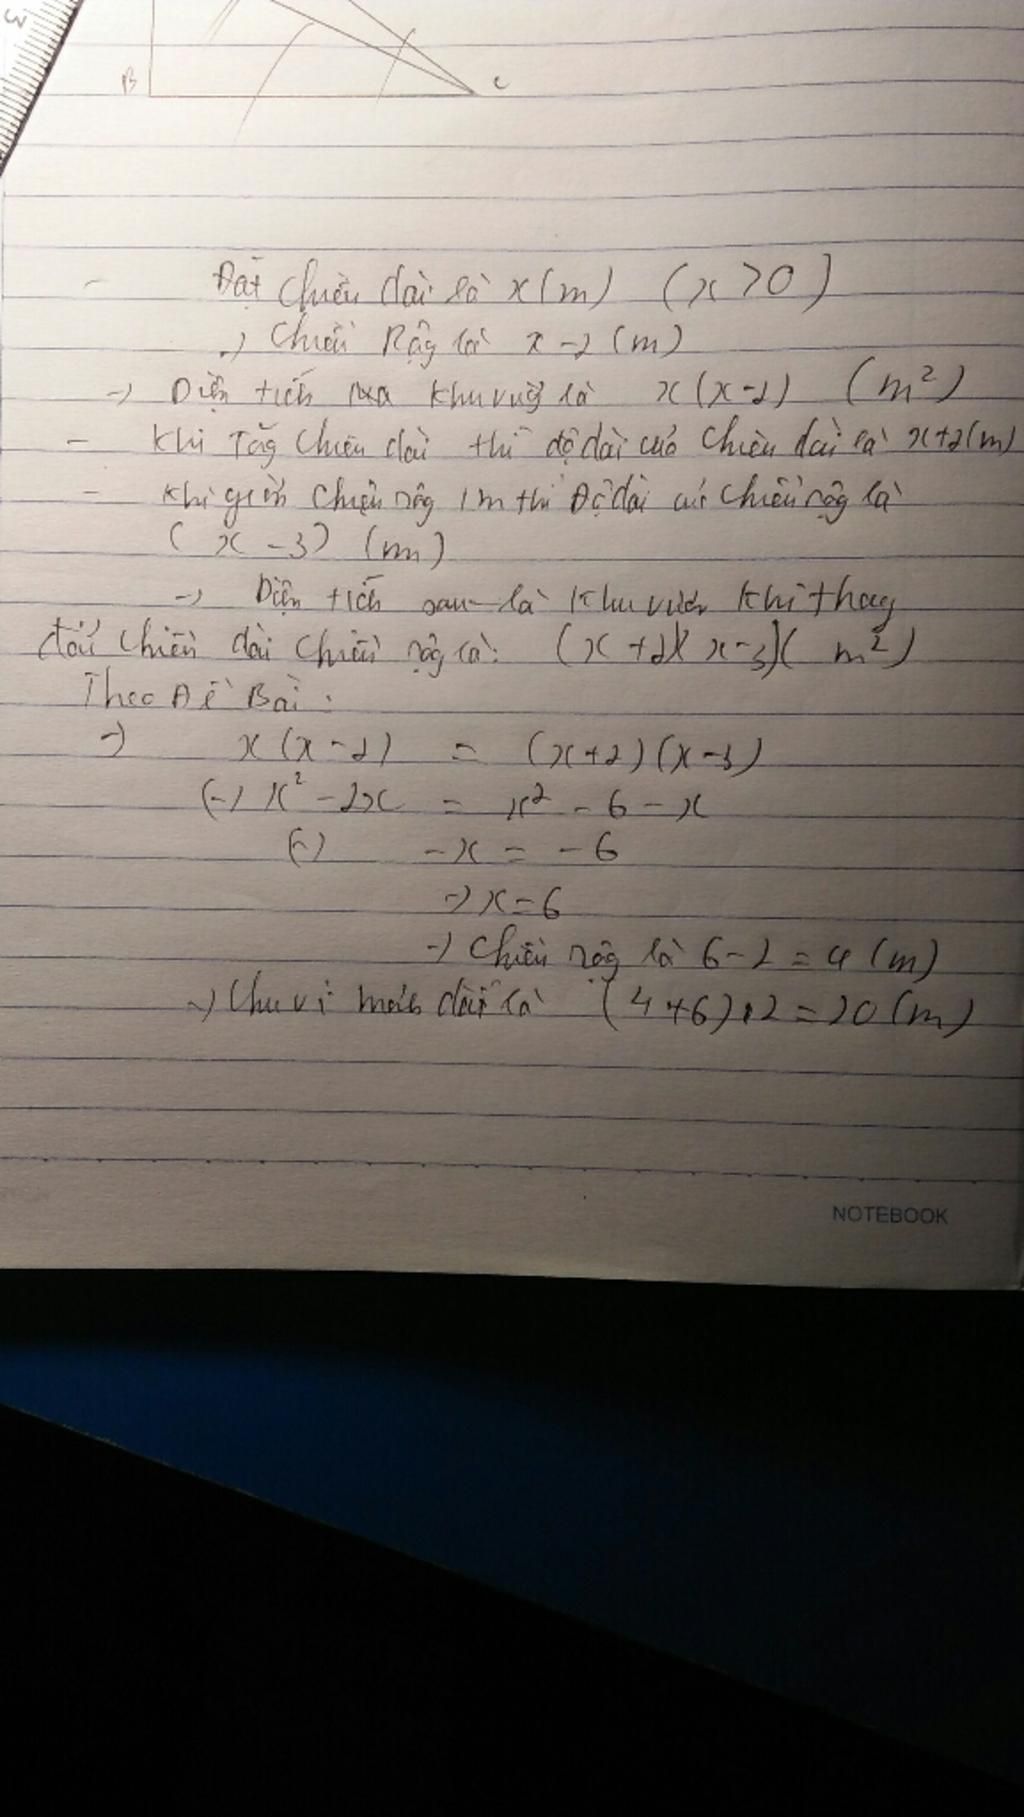 3
B C
- Đặt chiều dài là x(m) (x>0)
-) Chiều Rộg là x-2 (m)
-) Diện tích khu vườ là x(x-2) (m²)
- Khi Tăg chiều dài thì độ dài của chiều dài là x+2(m)
- Khi giảm chiều rộg 1m thì Độ dài của chiều rộg là
(x-3) (m)
-) Diện tích sau là khu vườn khi thay
đổi chiều dài chiều rộg là: (x+2)(x-3)(m²)
Theo Đề Bài:
-) x(x-2) = (x+2)(x-3)
(-) x²-2x = x²-6-x
(-) -x = -6
-) x=6
-) Chiều rộg là 6-2=4(m)
-) Chu vi là (4+6).2=20(m)
NOTEBOOK